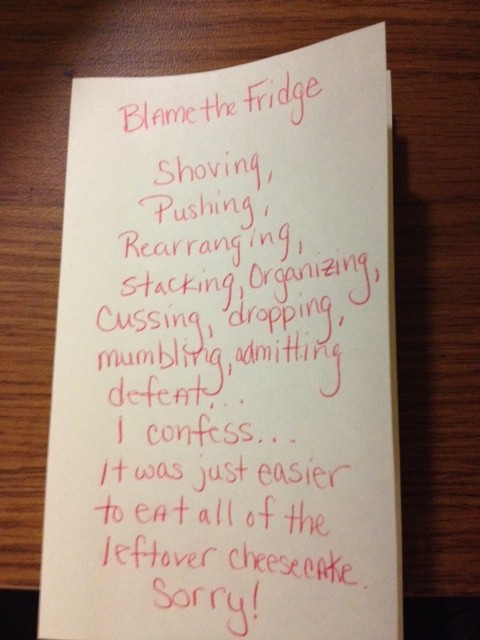 Blame the Fridge
Shoving,
Pushing,
Rearranging,
Stacking, Organizing,
Cussing, dropping,
mumbling, admitting
defeat...
I confess...
It was just easier
to eat all of the
leftover cheesecake.
Sorry!